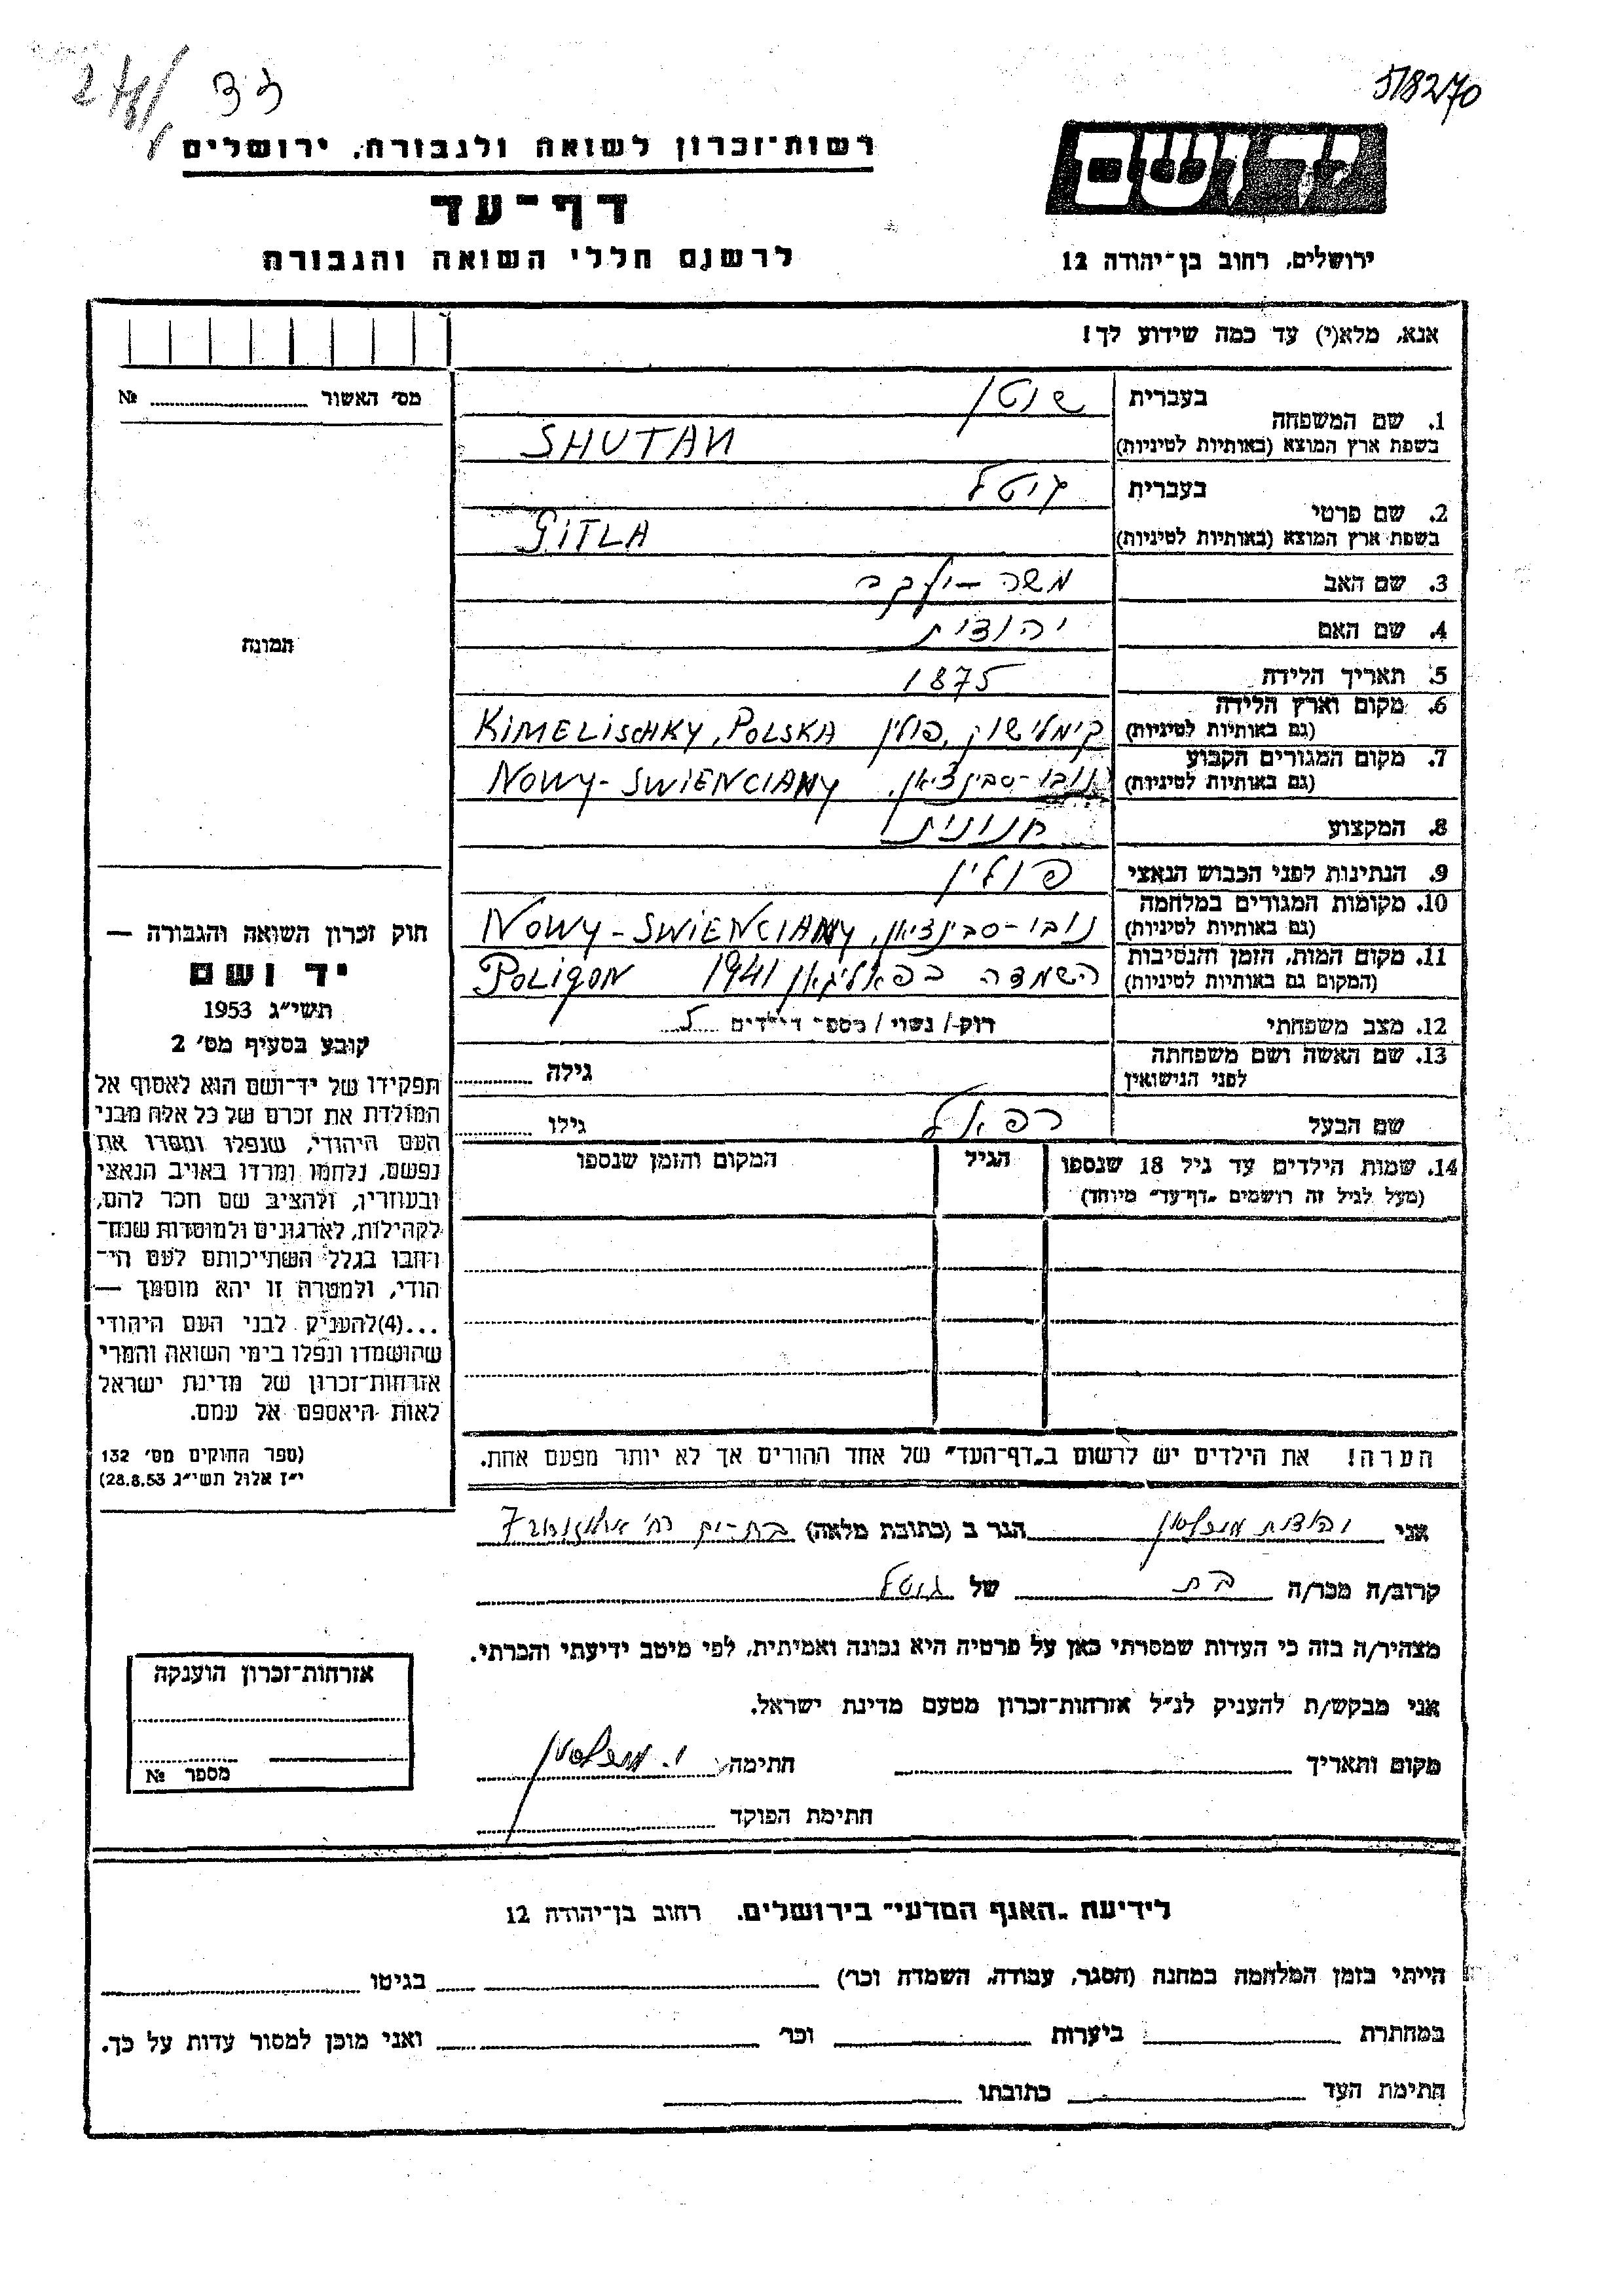 518270
33
רשות־זכרון לשואה ולגבורה, ירושלים
יד ושם
דף־עד
ירושלים, רחוב בן־יהודה 12
לרשום חללי השואה והגבורה
אנא, מלא(י) עד כמה שידוע לך!
מס׳ האשור № 
בעברית שוטן
1. שם המשפחה
בשפת ארץ המוצא (באותיות לטיניות) SHUTAN
בעברית גיטל
2. שם פרטי
בשפת ארץ המוצא (באותיות לטיניות) GITLA
3. שם האב משה – יעקב
4. שם האם יהודית
תמונה
5. תאריך הלידה 1875
6. מקום וארץ הלידה
(גם באותיות לטיניות) קימלישוק, פולין KIMELISCHKY, POLSKA
7. מקום המגורים הקבוע
(גם באותיות לטיניות) נובו-סבינציאן, NOWY-SWIENCIANY
8. המקצוע חנונית
9. הנתינות לפני הכבוש הנאצי פולין
10. מקומות המגורים במלחמה
(גם באותיות לטיניות) נובו-סבינציאן, NOWY-SWIENCIANY
11. מקום המות, הזמן והנסיבות
(המקום גם באותיות לטיניות) השמדה בפאליגאן 1941 POLIGON
12. מצב משפחתי רוק/ נשוי / מספר הילדים 5
13. שם האשה ושם משפחתה
לפני הנישואין גילה
שם הבעל רפאל גילו
14. שמות הילדים עד גיל 18 שנספו הגיל המקום והזמן שנספו
(מעל לגיל זה רושמים „דף־עד״ מיוחד)
חוק זכרון השואה והגבורה —
יד ושם
תשי״ג 1953
קובע בסעיף מס׳ 2
תפקידו של יד־ושם הוא לאסוף אל
המולדת את זכרם של כל אלה מבני
העם היהודי, שנפלו ומסרו את
נפשם, נלחמו ומרדו באויב הנאצי
ובעוזריו, ולהציב שם וזכר להם,
לקהילות, לארגונים ולמוסדות שנח־
רבו בגלל השתייכותם לעם הי־
הודי, ולמטרה זו יהא מוסמך —
...(4)להעניק לבני העם היהודי
שהושמדו ונפלו בימי השואה והמרי
אזרחות־זכרון של מדינת ישראל
לאות היאספם אל עמם.
(ספר החוקים מס׳ 132
י״ז אלול תשי״ג 28.8.53)
הערה! את הילדים יש לרשום ב„דף־העד״ של אחד ההורים אך לא יותר מפעם אחת.
אני יהודית הגר ב (כתובת מלאה) בת-ים רח׳ 7
קרוב/ה מכר/ה בת של גיטל
מצהיר/ה בזה כי העדות שמסרתי כאן על פרטיה היא נכונה ואמיתית, לפי מיטב ידיעתי והכרתי.
אני מבקש/ת להעניק לנ״ל אזרחות־זכרון מטעם מדינת ישראל.
מקום ותאריך חתימה י.
חתימת הפוקד
אזרחות־זכרון הוענקה
מספר №
לידיעת „האגף המדעי״ בירושלים. רחוב בן־יהודה 12
הייתי בזמן המלחמה במחנה (הסגר, עבודה, השמדה וכו׳) בגיטו
במחתרת ביערות וכו׳ ואני מוכן למסור עדות על כך.
חתימת העד כתובתו